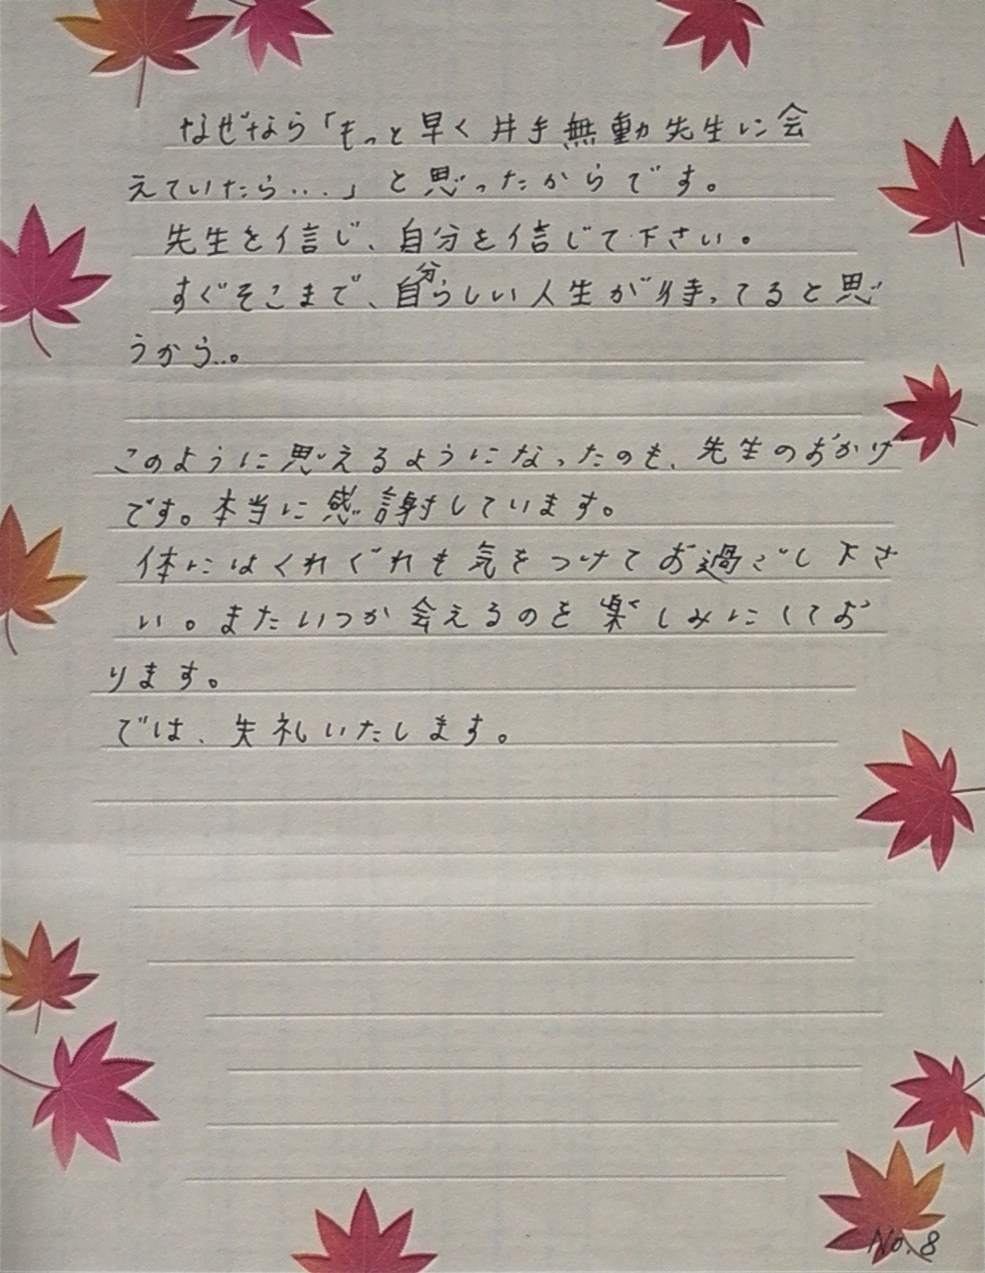 なぜなら「もっと早く井手無動先生に会
えていたら…」と思ったからです。
先生を信じ、自分を信じて下さい。
すぐそこまで、自分らしい人生が待ってると思
うから…。
このように思えるようになったのも、先生のおかげ
です。本当に感謝しています。
体にはくれぐれも気をつけてお過ごし下さ
い。またいつか会えるのを楽しみにしてお
ります。
では、失礼いたします。
No.8